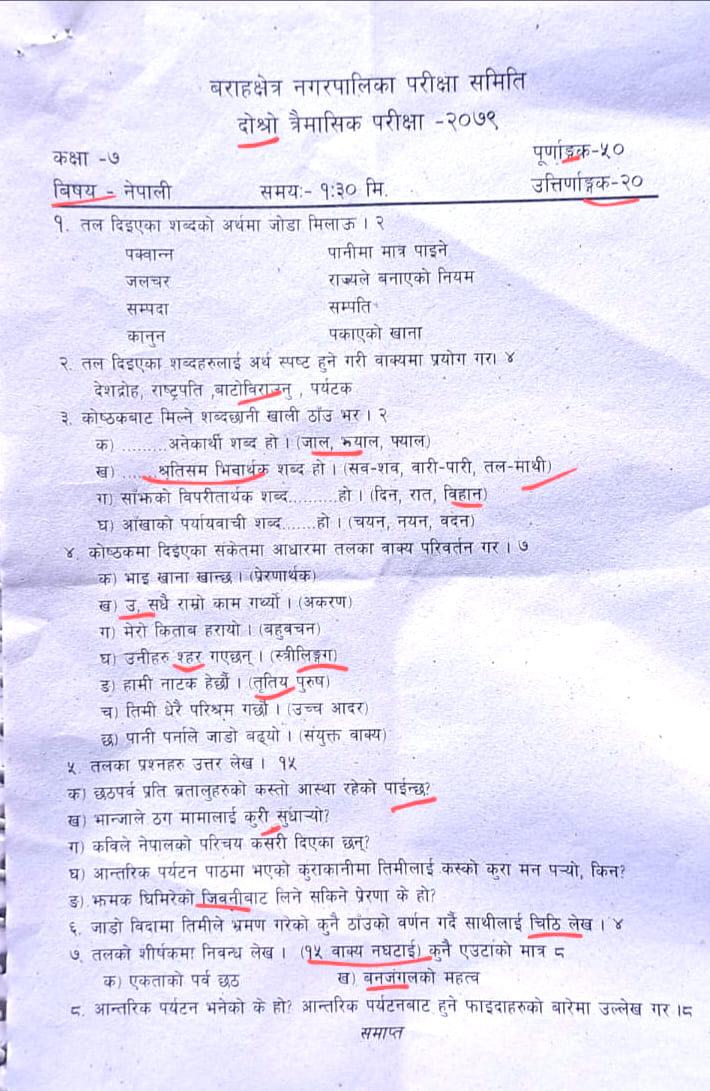 बराहक्षेत्र नगरपालिका परीक्षा समिति
दोश्रो त्रैमासिक परीक्षा -२०७९
कक्षा -७ पूर्णाङ्गक-५०
बिषय - नेपाली समयः- १:३० मि. उत्तिर्णाङ्गक-२०
१. तल दिइएका शब्दको अर्थमा जोडा मिलाऊ । २
पक्वान्न पानीमा मात्र पाइने
जलचर राज्यले बनाएको नियम
सम्पदा सम्पति
कानुन पकाएको खाना
२. तल दिइएका शब्दहरुलाई अर्थ स्पष्ट हुने गरी वाक्यमा प्रयोग गर। ४
देशद्रोह, राष्ट्रपति ,बाटोविराउनु , पर्यटक
३. कोष्ठकबाट मिल्ने शब्दछानी खाली ठाँउ भर । २
क) .........अनेकार्थी शब्द हो । (जाल, झ्याल, फ्याल)
ख) ......श्रतिसम भिन्नार्थक शब्द हो । (सव-शव, वारी-पारी, तल-माथी)
ग) साँझको विपरीतार्थक शब्द..........हो । (दिन, रात, विहान)
घ) आँखाको पर्यायवाची शब्द.......हो । (चयन, नयन, वदन)
४. कोष्ठकमा दिइएका संकेतमा आधारमा तलका वाक्य परिवर्तन गर । ७
क) भाइ खाना खान्छ । (प्रेरणार्थक)
ख) उ, सधै राम्रो काम गर्थ्यो । (अकरण)
ग) मेरो किताब हरायो । (बहुवचन)
घ) उनीहरु श्हर गएछन् । (स्त्रीलिङ्गग)
ङ) हामी नाटक हेर्छौं । (तृतिय पुरुष)
च) तिमी धेरै परिश्रम गर्छौ । (उच्च आदर)
छ) पानी पर्नाले जाडो बढ्यो । (संयुक्त वाक्य)
५. तलका प्रश्नहरु उत्तर लेख । १५
क) छठपर्व प्रति ब्रतालुहरुको कस्तो आस्था रहेको पाईन्छ?
ख) भान्जाले ठग मामालाई कुरी सुधाऱ्यो?
ग) कविले नेपालको परिचय कसरी दिएका छन्?
घ) आन्तरिक पर्यटन पाठमा भएको कुराकानीमा तिमीलाई कस्को कुरा मन पऱ्यो, किन?
ङ) झमक घिमिरेको जिवनीबाट लिने सकिने प्रेरणा के हो?
६. जाडो विदामा तिमीले भ्रमण गरेको कुनै ठाँउको वर्णन गर्दै साथीलाई चिठि लेख । ४
७. तलको शीर्षकमा निवन्ध लेख । (१५ वाक्य नघटाई) कुनै एउटाको मात्र ८
क) एकताको पर्व छठ ख) बनजंगलको महत्व
८. आन्तरिक पर्यटन भनेको के हो? आन्तरिक पर्यटनबाट हुने फाइदाहरुको बारेमा उल्लेख गर ।८
समाप्त